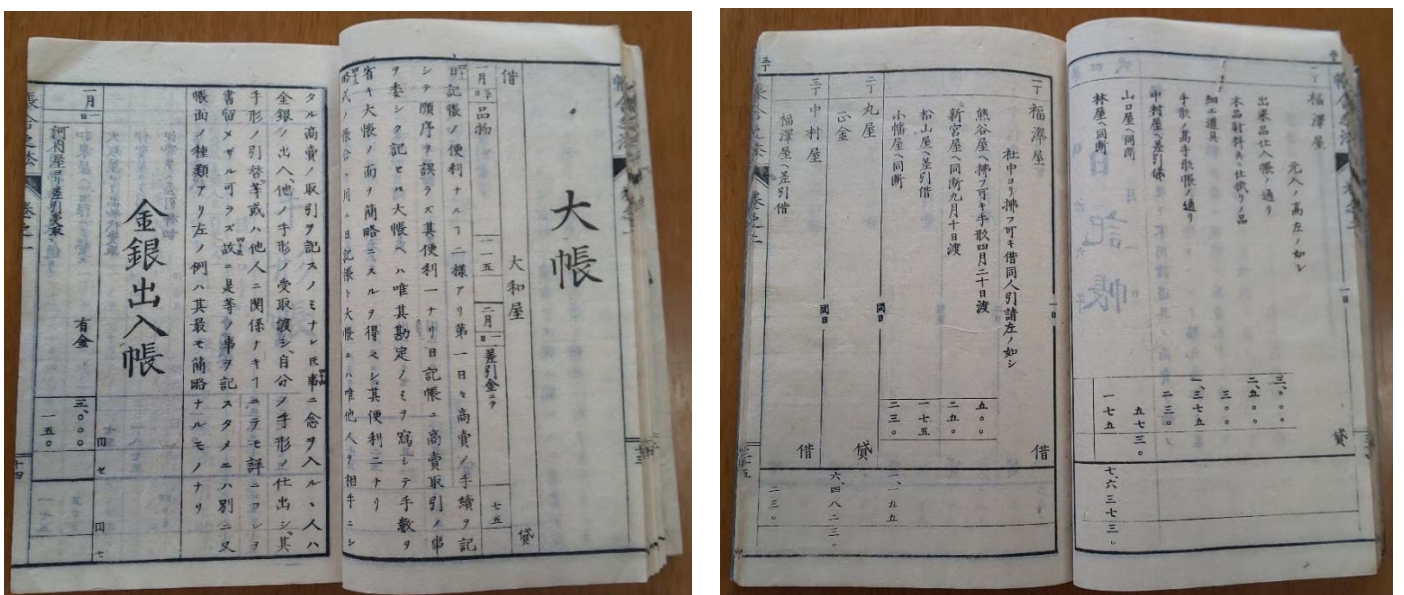 大帳
借 大和屋 貸
一月 品物 一一五 二月一 差引金ニテ 七五
日記帳ノ便利ナルヿ二樣アリ第一日々商賣ノ手續ヲ記
シテ順序ヲ誤ラズ其便利一ナリ日記帳ニ商賣取引ノ事
ヲ委シク記セバ大帳ヘハ唯其勘定ノミヲ寫シテ手數ヲ
省キ大帳ノ面ヲ簡略ニスルヲ得ベシ其便利二ナリ
略式ノ帳合ニ用ル日記帳ト大帳ニハ唯他人ヲ相手ニシ
タル商賣ノ取引ヲ記スノミナレ𪜈事ニ念ヲ入ルヽ人ハ
金銀ノ出入、他ノ手形ノ受取渡シ、自分ノ手形ノ仕出シ、其
手形ノ引替等或ハ他人ニ關係ナキヿニテモ詳ニコレヲ
書留メザル可ラズ故ニ是等ノ事ヲ記スタメニハ別ニ又
帳面ノ種類アリ左ノ例ハ其最モ簡略ナルモノナリ
金銀出入帳
円 セ 円 セ
一月一日 有金 三、〇〇〇
河内屋ヨリ差引受取 一五〇
帳合之法 卷之一 十四
一丁 福澤屋 一日 貸
元入ノ高左ノ如シ
出來品仕入帳ノ通リ 三、〇〇〇
木品財料具仕掛リノ品 二、五〇〇
細工道具 三〇〇
手形ノ高手形帳ノ通リ 一、三七五
中村屋ヘ差引貸 二三〇
山口屋ヘ同斷 五七三〇
林屋ヘ同斷 一七五 七、六三七三〇
二丁 福澤屋 一日 借
社中ヨリ拂フ可キ借同人引請左ノ如シ
熊谷屋ヘ拂フ可キ手形四月二十日渡 五〇〇
新宮屋ヘ同斷九月十日渡 二五〇
松山屋ヘ差引借 一七五
小幡屋ヘ同斷 二三〇 一、一五五
二丁 丸屋 同日 貸
正金 六、四八二三〇
三丁 中村屋 同日 借
福澤屋ヘ差引借 二三〇
帳合之法